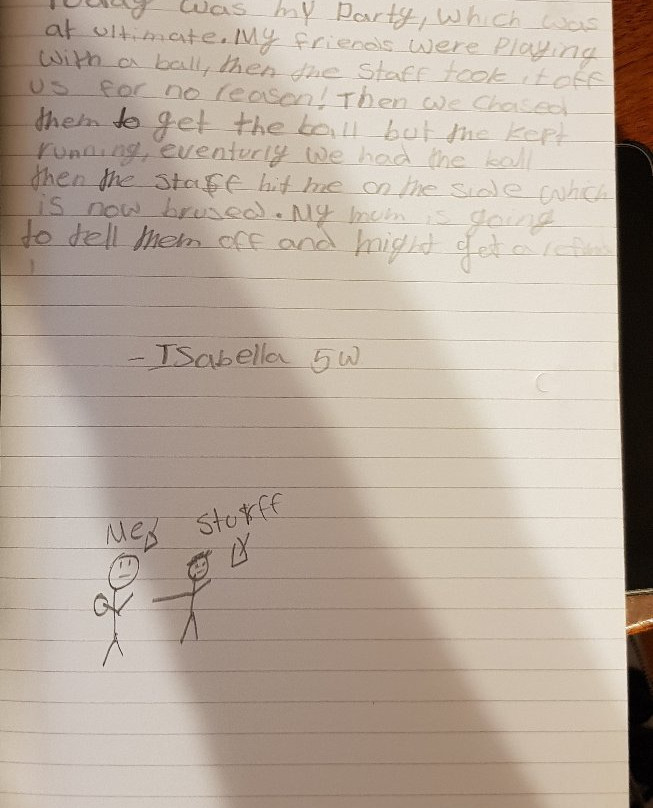 Today was my Party, which was
at ultimate. My friends were Playing
with a ball, then the Staff took it off
us for no reason! Then we chased
them to get the ball but the kept
running, eventurly we had the ball
then the staff hit me on the side which
is now brused. My mum is going
to tell them off and might get a
- ISabella 5W
Me Stuff